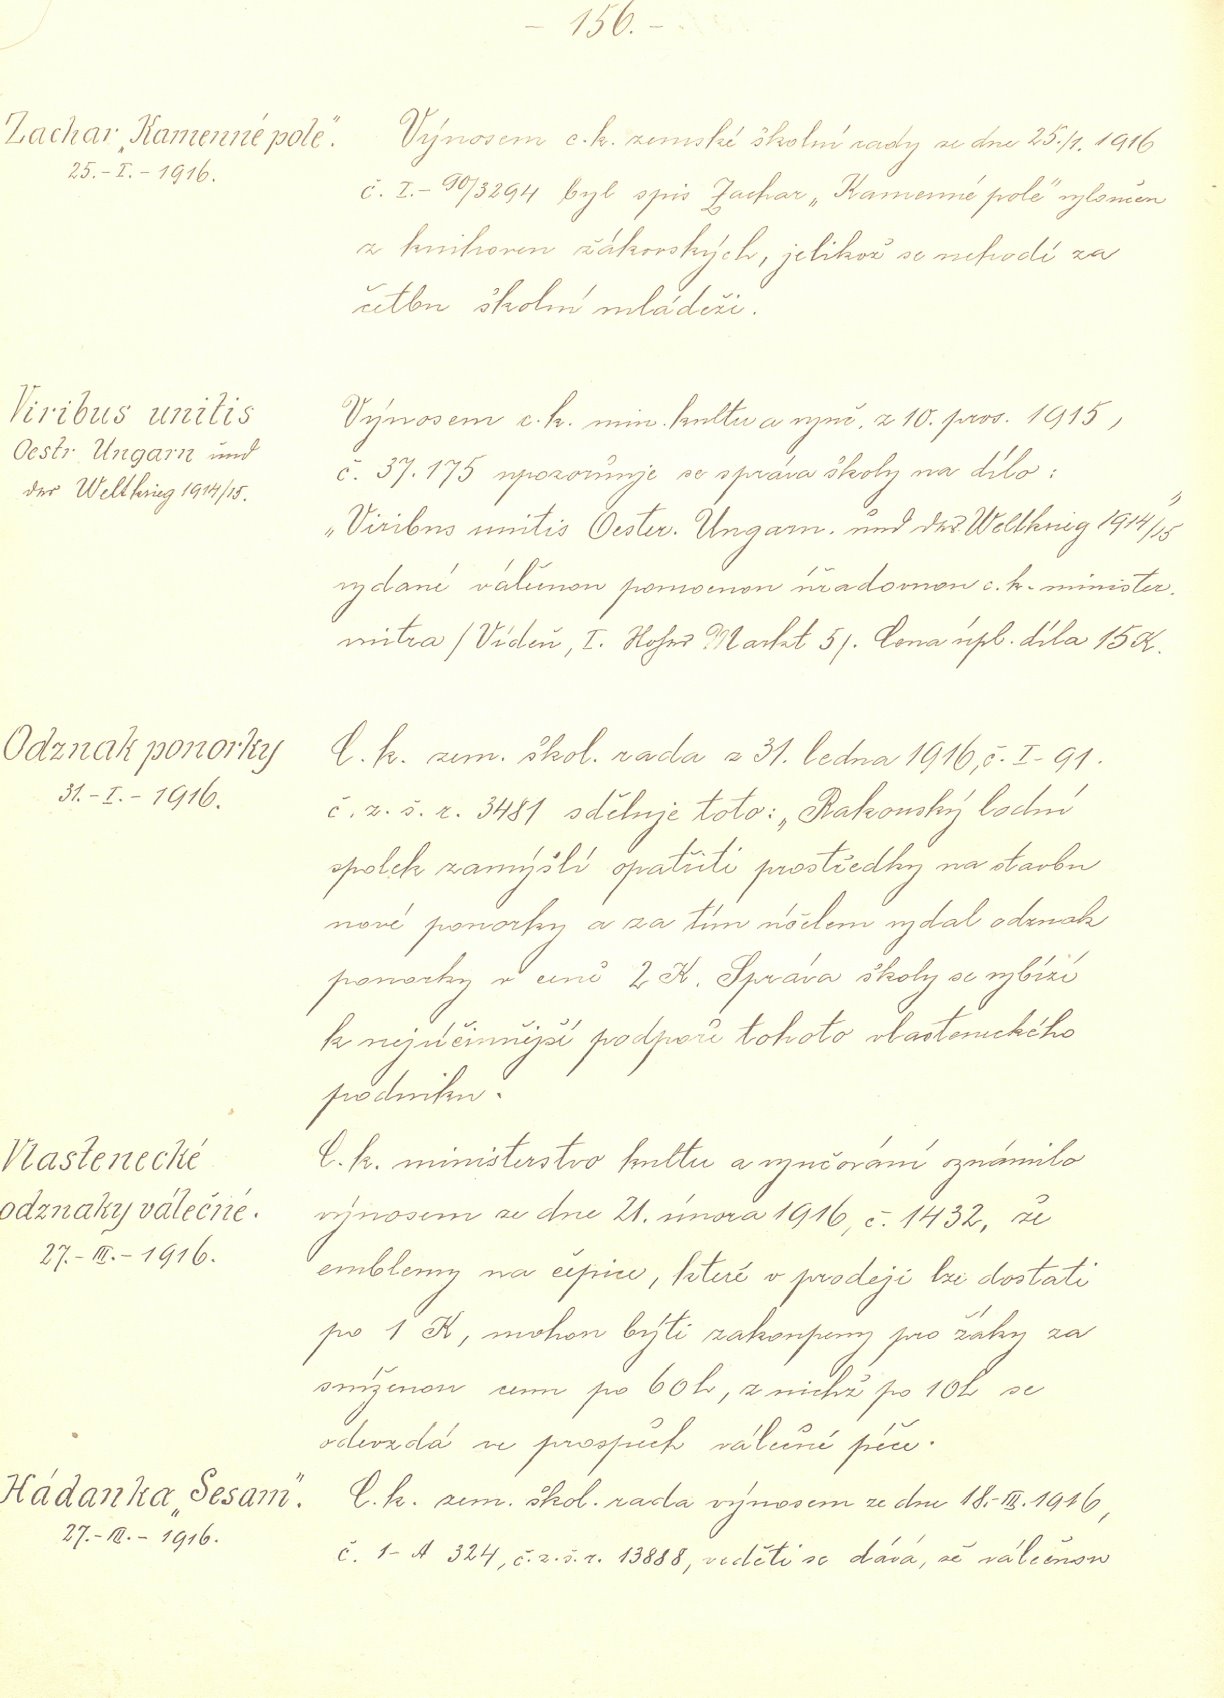 - 156. -
Zachar „Kamenné pole".
25.-I.-1916.
Výnosem c. k. zemské školní rady ze dne 25./1. 1916
č. I.-90/3294 byl spis Zachar „Kamenné pole" vyloučen
z knihoven žákovských, jelikož se nehodí za
četbu školní mládeži.
Viribus unitis
Oestr. Ungarn und
der Weltkrieg 1914/15.
Výnosem c. k. min. kultu a vyuč. z 10. pros. 1915,
č. 37.175 upozorňuje se správa školy na dílo:
„Viribus unitis Oester. Ungarn. und der Weltkrieg 1914/15"
vydané válečnou pomocnou úřadovnou c. k. minister.
nitra /Vídeň, I. Hoher Markt 5/. Cena úpl. díla 15 K.
Odznak ponorky
31.-I.-1916.
C. k. zem. škol. rada z 31. ledna 1916, č. I-91.
č. z. š. r. 3481 sděluje toto: „Rakouský lodní
spolek zamýšlí opatřiti prostředky na stavbu
nové ponorky a za tím účelem vydal odznak
ponorky v ceně 2 K. Správa školy se vybízí
k nejúčinnější podpoře tohoto vlasteneckého
podniku.
Vlastenecké
odznaky válečné.
27.-III.-1916.
C. k. ministerstvo kultu a vyučování oznámilo
výnosem ze dne 21. února 1916, č. 1432, že
emblemy na čepice, které v prodeji lze dostati
po 1 K, mohou býti zakoupeny pro žáky za
sníženou cenu po 60 h, z nichž po 10 h se
odevzdá ve prospěch válečné péče.
Hádanka „Sesam".
27.-III.-1916.
C. k. zem. škol. rada výnosem ze dne 18.-III.1916,
č. 1-A 324, č. z. š. r. 13888, věděti se dává, že válečnou